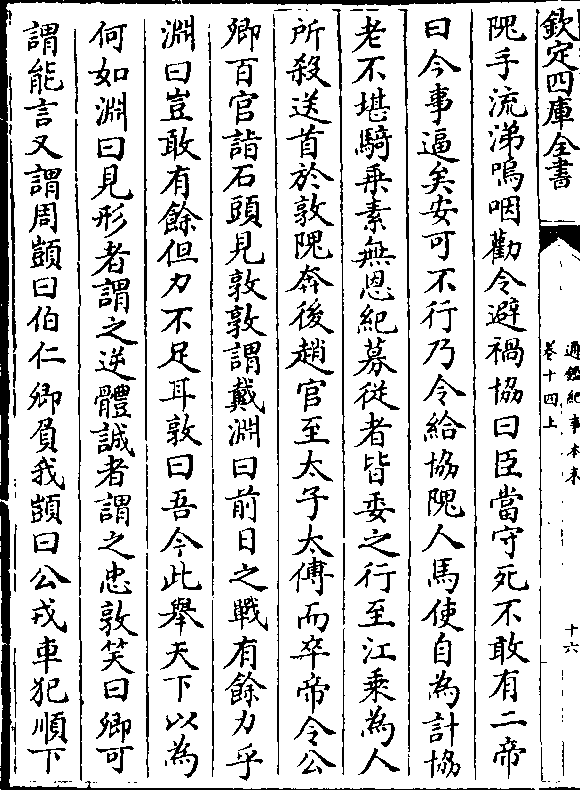 欽定四庫全書
通鑑紀事本末
卷十四上
十六
隗手流涕嗚咽勸令避禍協曰臣當守死不敢有二帝
曰今事逼矣安可不行乃令給協隗人馬使自為計協
老不堪騎乗素無恩紀募從者皆委之行至江乗為人
所殺送首於敦隗奔後趙官至太子太傅而卒帝令公
卿百官詣石頭見敦敦謂戴淵曰前日之戰有餘力乎
淵曰豈敢有餘但力不足耳敦曰吾今此舉天下以為
何如淵曰見形者謂之逆體誠者謂之忠敦笑曰卿可
謂能言又謂周顗曰伯仁卿負我顗曰公戎車犯順下